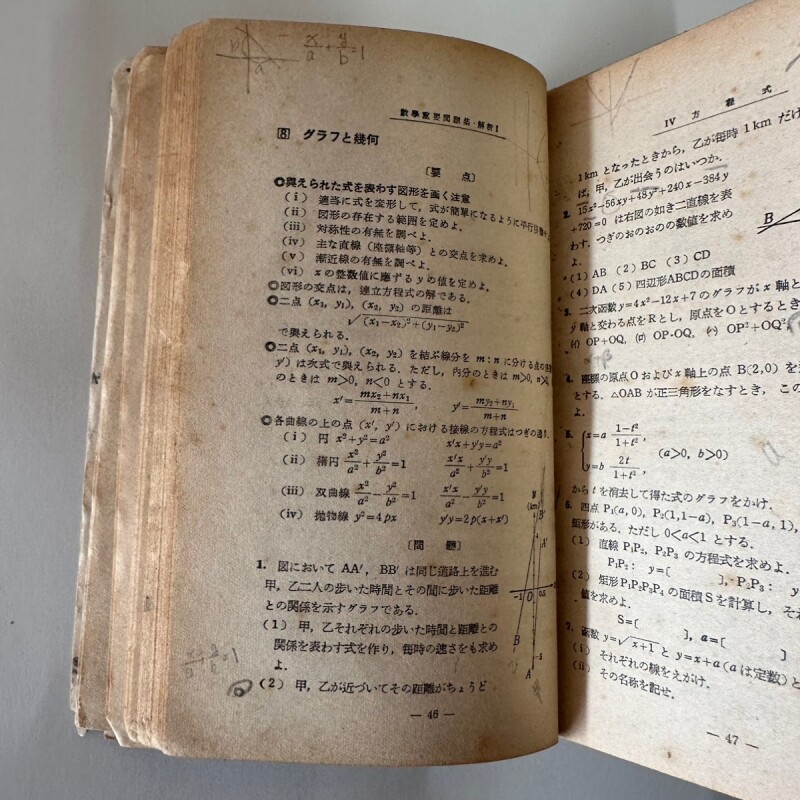 x/a + y/b = 1
b
a
数學重要問題集・解析I
8 グラフと幾何
〔要 点〕
◎與えられた式を表わす図形を画く注意
(i) 適当に式を変形して,式が簡単になるように平行移動
(ii) 図形の存在する範囲を定めよ.
(iii) 対称性の有無を調べよ.
(iv) 主な直線(座標軸等)との交点を求めよ.
(v) 漸近線の有無を調べよ.
(vi) xの整数値に應ずるyの値を定めよ.
◎図形の交点は,連立方程式の解である.
◎二点 (x₁, y₁), (x₂, y₂) の距離は
√(x₁-x₂)²+(y₁-y₂)²
で與えられる.
◎二点 (x₁, y₁), (x₂, y₂) を結ぶ線分を m:n に分ける点の
y') は次式で與えられる.ただし,内分のときは m>0, n>0
のときは m>0, n<0 とする.
x'= mx₂+nx₁/m+n, y'= my₂+ny₁/m+n
◎各曲線の上の点 (x', y') における接線の方程式はつぎの通り.
(i) 円 x²+y²=a² x'x+y'y=a²
(ii) 楕円 x²/a²+y²/b²=1 x'x/a²+y'y/b²=1
(iii) 双曲線 x²/a²-y²/b²=1 x'x/a²-y'y/b²=1
(iv) 抛物線 y²=4px y'y=2p(x+x')
〔問 題〕
1. 図において AA', BB' は同じ道路上を進む
甲,乙二人の歩いた時間とその間に歩いた距離
との関係を示すグラフである.
(1) 甲,乙それぞれの歩いた時間と距離との
関係を表わす式を作り,毎時の速さをも求め
よ.
(2) 甲,乙が近づいてその距離がちょうど
(km)
B'
A'
-1 O
B
A
x/a + y/b = 1
— 46 —
IV 方 程 式
1km となったときから,乙が毎時 1km だけ
ば,甲,乙が出会うのはいつか.
2. 15x²-56xy+48y²+240x-384y
+720=0 は右図の如き二直線を表
わす.つぎのおのおのの数値を求め
よ.
B
(1) AB (2) BC (3) CD
(4) DA (5) 四辺形ABCDの面積
3. 二次函数 y=4x²-12x+7 のグラフが x 軸と
y 軸と交わる点をRとし,原点をOとするとき
(イ) OP+OQ, (ロ) OP・OQ, (ハ) OP²+OQ²,
4. 座標の原点 O および x 軸上の点 B(2,0) を
とする.△OAB が正三角形をなすとき,この
よ.
5. x=a 1-t²/1+t²,
y=b 2t/1+t²,
(a>0, b>0)
から t を消去して得た式のグラフをかけ.
6. 四点 P₁(a, 0), P₂(1,1-a), P₃(1-a, 1),
矩形がある.ただし 0<a<1 とする.
(1) 直線 P₁P₂, P₂P₃ の方程式を求めよ.
P₁P₂: y=[ ], P₂P₃: y
(2) 矩形 P₁P₂P₃P₄ の面積 S を計算し,それ
値を求めよ.
S=[ ], a=[ ]
7. 函数 y=√x+1 と y=x+a (a は定数) と
(i) それぞれの線をえがけ.
(ii) その名称を記せ.
— 47 —